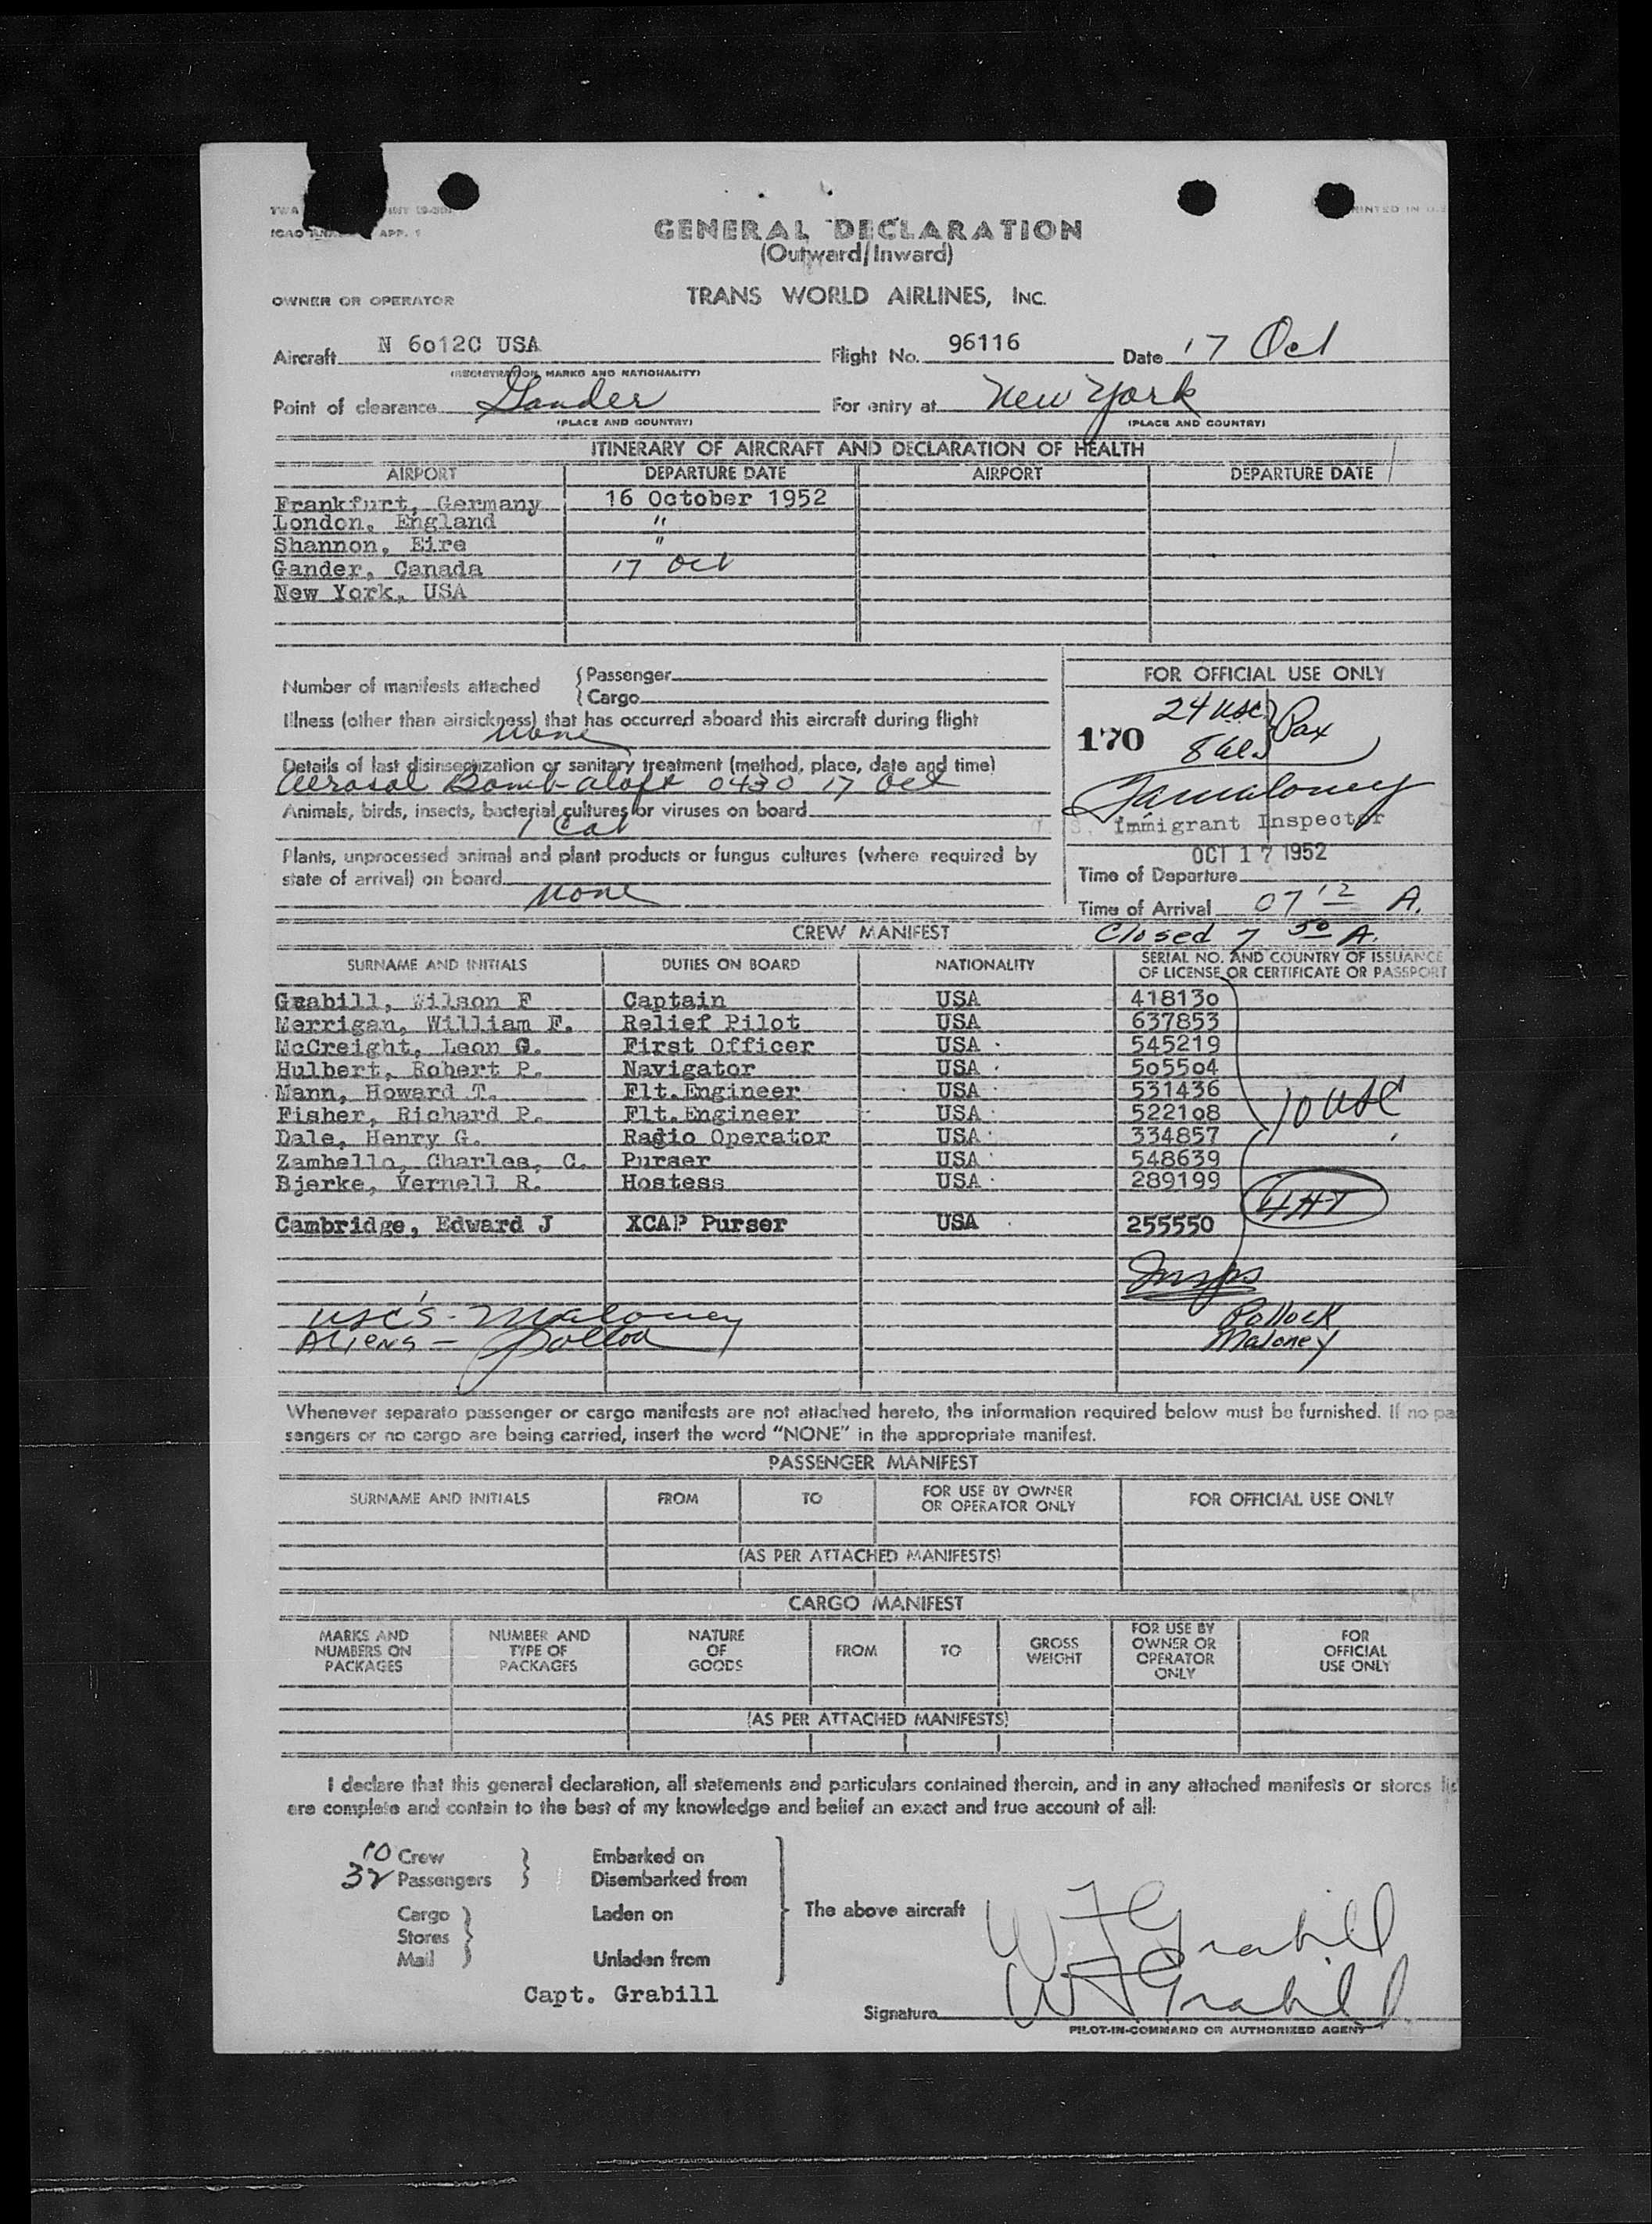 TWA
ICAO APP. 1
PRINTED IN U.S.
GENERAL DECLARATION
(Outward/Inward)
OWNER OR OPERATOR TRANS WORLD AIRLINES, INC.
Aircraft N 6012C USA Flight No. 96116 Date 17 Oct
(REGISTRATION MARKS AND NATIONALITY)
Point of clearance Gander For entry at New York
(PLACE AND COUNTRY) (PLACE AND COUNTRY)
ITINERARY OF AIRCRAFT AND DECLARATION OF HEALTH
AIRPORT DEPARTURE DATE AIRPORT DEPARTURE DATE
Frankfurt, Germany 16 October 1952
London, England "
Shannon, Eire "
Gander, Canada 17 Oct
New York, USA
Number of manifests attached { Passenger
{ Cargo
Illness (other than airsickness) that has occurred aboard this aircraft during flight
None
Details of last disinsectization or sanitary treatment (method, place, date and time)
Aerosol Bomb aloft 0430 17 Oct
Animals, birds, insects, bacterial cultures or viruses on board
1 Cat
Plants, unprocessed animal and plant products or fungus cultures (where required by
state of arrival) on board
None
FOR OFFICIAL USE ONLY
24 USC } Pax
170
8
Maloney
Immigrant Inspector
OCT 17 1952
Time of Departure
Time of Arrival 07 12 A.
Closed 7 50 A.
CREW MANIFEST
SURNAME AND INITIALS DUTIES ON BOARD NATIONALITY SERIAL NO. AND COUNTRY OF ISSUANCE
OF LICENSE OR CERTIFICATE OR PASSPORT
Grabill, Wilson F Captain USA 418130
Merrigan, William F. Relief Pilot USA 637853
McCreight, Leon G. First Officer USA 545219
Hulbert, Robert P. Navigator USA 505504
Mann, Howard T. Flt.Engineer USA 531436
Fisher, Richard P. Flt.Engineer USA 522108
Dale, Henry G. Radio Operator USA 334857
Zambello, Charles, C. Purser USA 548639
Bjerke, Vernell R. Hostess USA 289199
Cambridge, Edward J XCAP Purser USA 255550
10 USC
Insps
Pollock
Maloney
USC's - Maloney
Aliens - Pollock
Whenever separate passenger or cargo manifests are not attached hereto, the information required below must be furnished. If no pas
sengers or no cargo are being carried, insert the word "NONE" in the appropriate manifest.
PASSENGER MANIFEST
SURNAME AND INITIALS FROM TO FOR USE BY OWNER
OR OPERATOR ONLY FOR OFFICIAL USE ONLY
(AS PER ATTACHED MANIFESTS)
CARGO MANIFEST
MARKS AND
NUMBERS ON
PACKAGES
NUMBER AND
TYPE OF
PACKAGES
NATURE
OF
GOODS
FROM
TO
GROSS
WEIGHT
FOR USE BY
OWNER OR
OPERATOR
ONLY
FOR
OFFICIAL
USE ONLY
(AS PER ATTACHED MANIFESTS)
I declare that this general declaration, all statements and particulars contained therein, and in any attached manifests or stores lis
are complete and contain to the best of my knowledge and belief an exact and true account of all:
10 Crew } Embarked on
32 Passengers } Disembarked from
Cargo } Laden on
Stores
Mail } Unladen from
The above aircraft
W F Grabill
Capt. Grabill
Signature W F Grabill
PILOT-IN-COMMAND OR AUTHORIZED AGENT